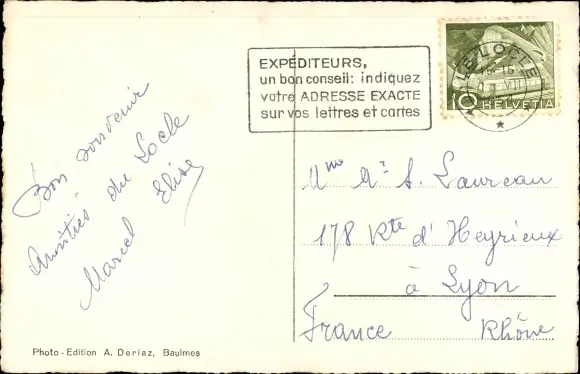 EXPÉDITEURS,
un bon conseil: indiquez
votre ADRESSE EXACTE
sur vos lettres et cartes
LE LOCLE
10 HELVETIA
Bon souvenir
Amitiés du Locle
Marcel Elise
Mme A. Laureau
178 Rte d'Heyrieux
à Lyon
France Rhône
Photo-Edition A. Deriaz, Baulmes